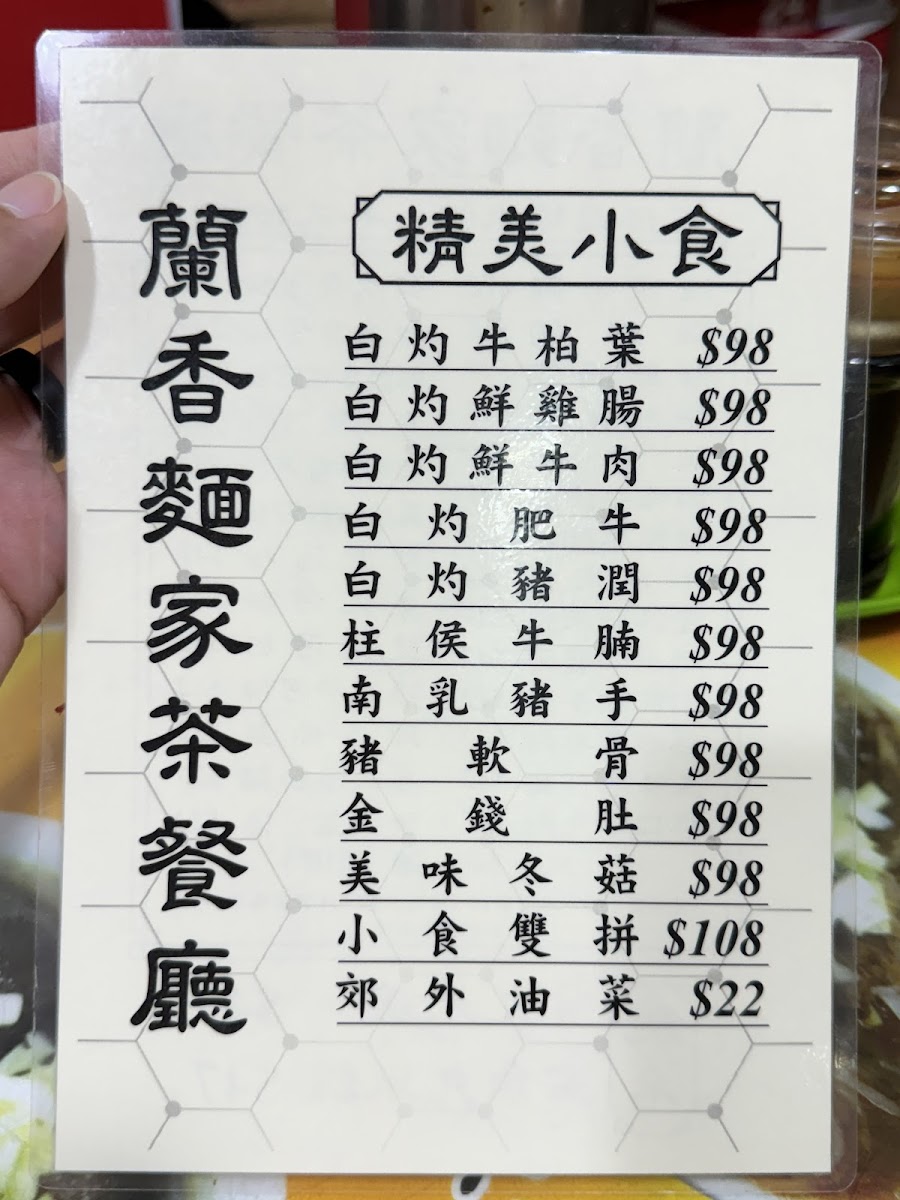 蘭香麵家茶餐廳
精美小食
白灼牛柏葉 $98
白灼鮮雞腸 $98
白灼鮮牛肉 $98
白灼肥牛 $98
白灼豬潤 $98
柱侯牛腩 $98
南乳豬手 $98
豬軟骨 $98
金錢肚 $98
美味冬菇 $98
小食雙拼 $108
郊外油菜 $22